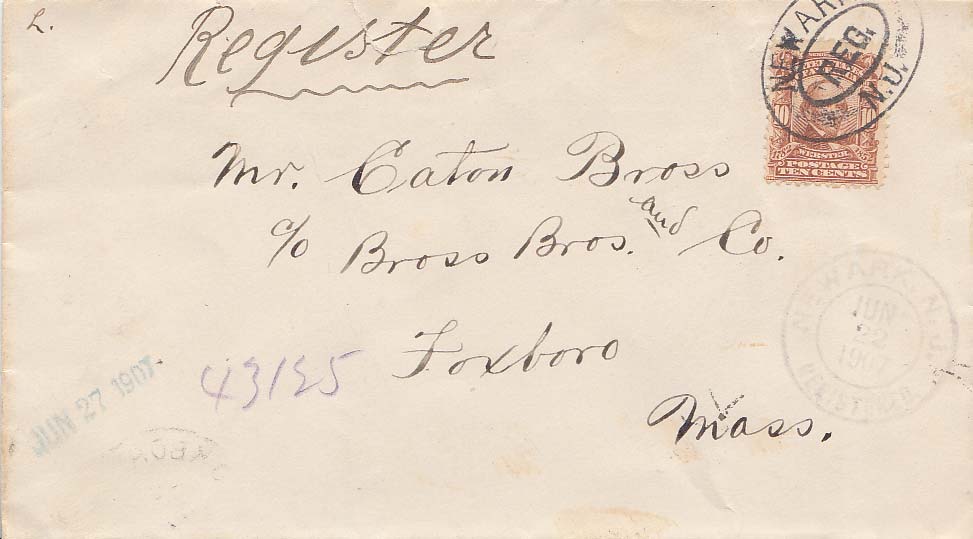 L.
Register
NEWARK
REG.
N.J.
10 10
WEBSTER
POSTAGE
TEN CENTS
Mr. Eaton Bross
c/o Bross Bros. and Co.
Foxboro
Mass.
NEWARK, N.J.
JUN
22
1907
REGISTERED
43185
JUN 27 1907